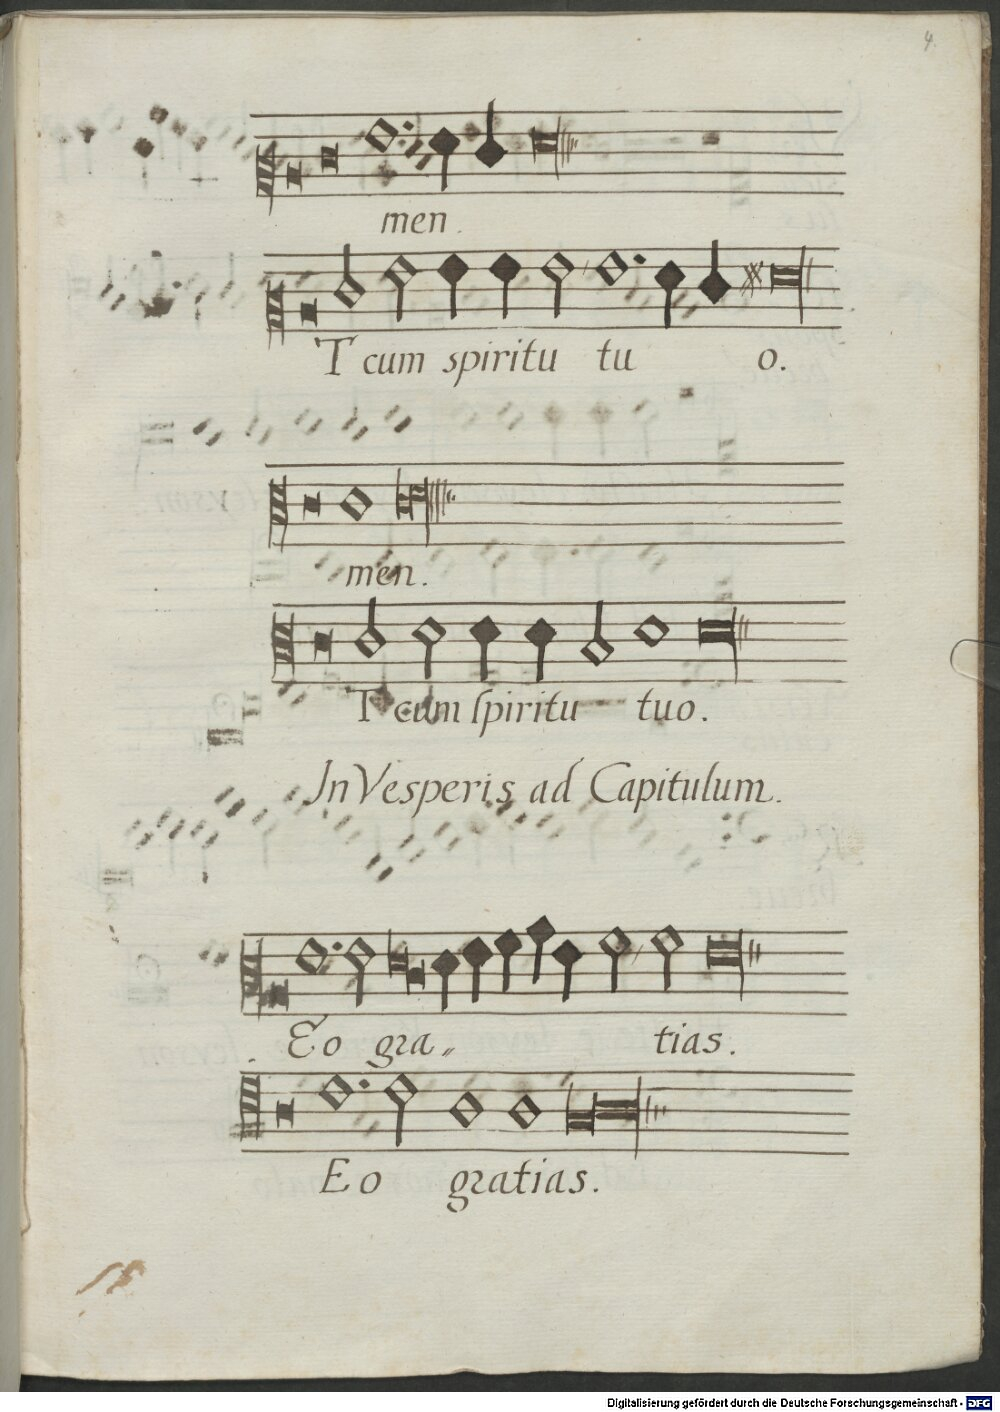 4.
men.
T cum spiritu tu o.
men.
T cum ſpiritu tuo.
In Vesperis ad Capitulum.
Eo gra„ tias.
Eo gratias.
Digitalisierung gefördert durch die Deutsche Forschungsgemeinschaft - DFG